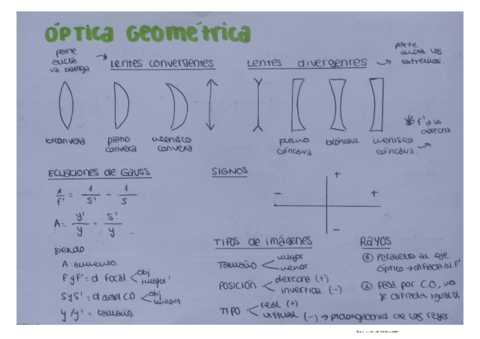 ÓPTICA GEOMÉTRICA
parte
ancha
va barriga
LENTES CONVERGENTES
LENTES divergentes
parte
ancha los
extremos
biconvexa
plano
convexa
menisco
convexa
plano
cóncava
bicóncava
menisco
cóncava
f' a la
derecha
ECUACIONES de GAUSS
1/f' = 1/s' - 1/s
A = y'/y = s'/s
siendo:
A aumento
f y f' = d focal < obj imagen
s y s' = d a CO < obj imagen
y / y' = tamaño
SIGNOS
+
-
+
-
TIPOS de imágenes
TAMAÑO < mayor menor
POSICIÓN < derecha (+) invertida (-)
TIPO < real (+) virtual (-) → prolongaciones de los rayos.
RAYOS
① Paralelo al eje
óptico →
② Pasa por CO, no
se